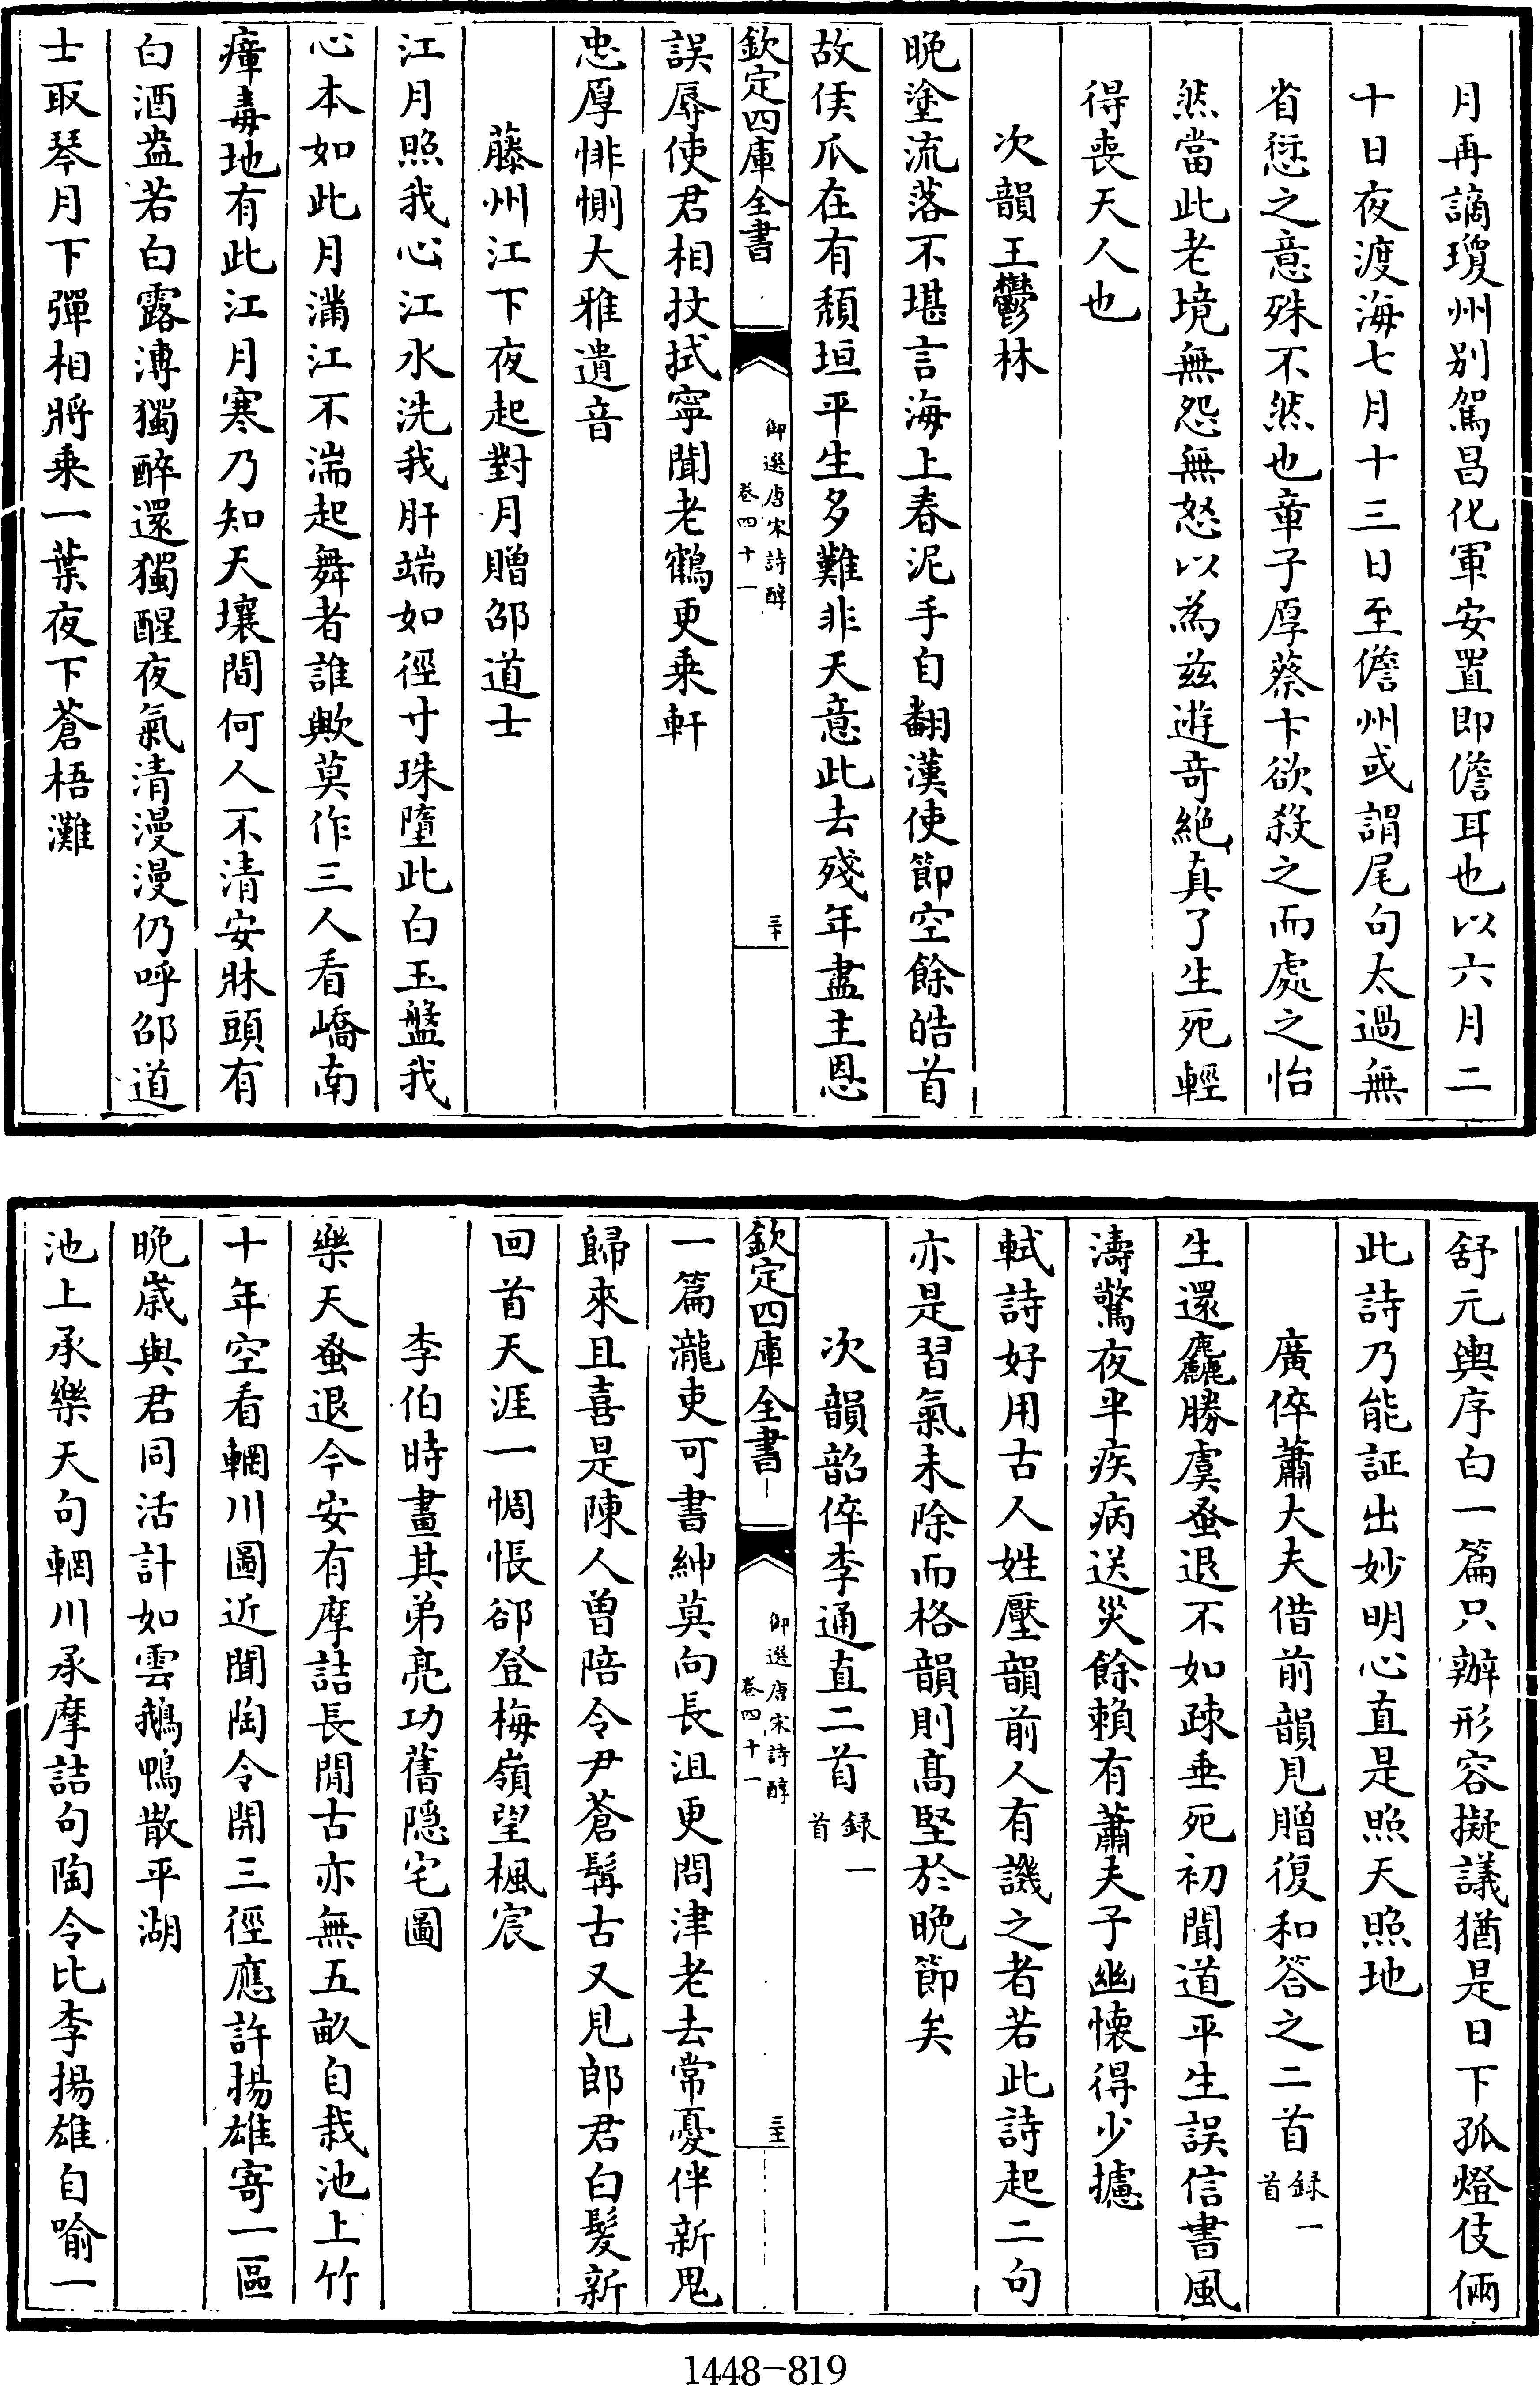 月再謫瓊州别駕昌化軍安置即儋耳也以六月二
十日夜渡海七月十三日至儋州或謂尾句太過無
省愆之意殊不然也章子厚蔡卞欲殺之而處之怡
然當此老境無怨無怒以為兹遊竒絶真了生死輕
得喪天人也
次韻王鬱林
晚塗流落不堪言海上春泥手自翻漢使節空餘皓首
故侯瓜在有頹垣平生多難非天意此去殘年盡主恩
欽定四庫全書
御選唐宋詩醇
卷四十一
三十
誤辱使君相抆拭寧聞老鶴更乗軒
忠厚悱惻大雅遺音
藤州江下夜起對月贈邵道士
江月照我心江水洗我肝端如徑寸珠墮此白玉盤我
心本如此月滿江不湍起舞者誰歟莫作三人看嶠南
瘴毒地有此江月寒乃知天壤間何人不清安牀頭有
白酒盎若白露漙獨醉還獨醒夜氣清漫漫仍呼邵道
士取琴月下彈相將乗一葉夜下蒼梧灘
舒元輿序白一篇只辦形容擬議猶是日下孤燈伎倆
此詩乃能証出妙明心直是照天照地
廣倅蕭大夫借前韻見贈復和答之二首録一首
生還麤勝虞蚤退不如疎垂死初聞道平生誤信書風
濤驚夜半疾病送災餘賴有蕭夫子幽懐得少攄
軾詩好用古人姓壓韻前人有譏之者若此詩起二句
亦是習氣未除而格韻則髙堅於晚節矣
次韻韶倅李通直二首録一首
欽定四庫全書
御選唐宋詩醇
卷四十一
三十一
一篇瀧吏可書紳莫向長沮更問津老去常憂伴新鬼
歸來且喜是陳人曽陪令尹蒼髯古又見郎君白髪新
回首天涯一惆悵郤登梅嶺望楓宸
李伯時畫其弟亮功舊隠宅圖
樂天蚤退今安有摩詰長閒古亦無五畝自栽池上竹
十年空看輞川圖近聞陶令開三徑應許揚雄寄一區
晩嵗與君同活計如雲鵝鴨散平湖
池上承樂天句輞川承摩詰句陶令比李揚雄自喻一
1448-819